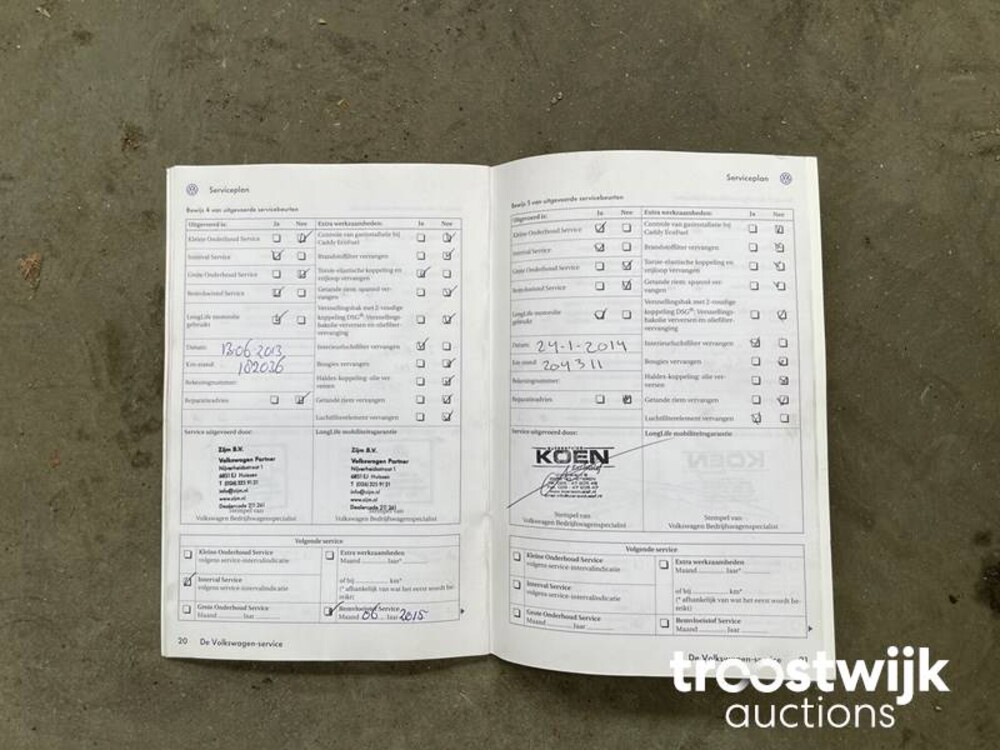 Serviceplan
Bewijs 4 van uitgevoerde servicebeurten
Uitgevoerd is: Ja Nee Extra werkzaamheden: Ja Nee
Kleine Onderhoud Service Controle van gasinstallatie bij
Caddy EcoFuel
Interval Service Brandstoffilter vervangen
Grote Onderhoud Service Torsie-elastische koppeling en
vrijloop vervangen
Remvloeistof Service Getande riem: spanrol ver-
vangen
LongLife motorolie
gebruikt
Versnellingsbak met 2-voudige
koppeling DSG®: Versnellings-
bakolie verversen en oliefilter-
vervanging
Datum: 13-06-2013 Interieurluchtfilter vervangen
Km-stand: 182036 Bougies vervangen
Rekeningnummer: Haldex-koppeling: olie ver-
versen
Reparatieadvies Getande riem vervangen
Luchtfilterelement vervangen
Service uitgevoerd door: LongLife mobiliteitsgarantie
Zijm B.V. Zijm B.V.
Volkswagen Partner Volkswagen Partner
Nijverheidsstraat 1 Nijverheidsstraat 1
6851 EJ Huissen 6851 EJ Huissen
T (026) 325 91 21 T (026) 325 91 21
info@zijm.nl info@zijm.nl
www.zijm.nl www.zijm.nl
Dealercode 27/261 Dealercode 27/261
Stempel van Stempel van
Volkswagen Bedrijfswagenspecialist Volkswagen Bedrijfswagenspecialist
Volgende service
Kleine Onderhoud Service
volgens service-intervalindicatie
Extra werkzaamheden
Maand Jaar*
Interval Service
volgens service-intervalindicatie
of bij km*
(* afhankelijk van wat het eerst wordt be-
reikt)
Grote Onderhoud Service
Maand Jaar
Remvloeistof Service
Maand 06 Jaar 2015
20 De Volkswagen-service
Serviceplan
Bewijs 5 van uitgevoerde servicebeurten
Uitgevoerd is: Ja Nee Extra werkzaamheden: Ja Nee
Kleine Onderhoud Service Controle van gasinstallatie bij
Caddy EcoFuel
Interval Service Brandstoffilter vervangen
Grote Onderhoud Service Torsie-elastische koppeling en
vrijloop vervangen
Remvloeistof Service Getande riem: spanrol ver-
vangen
LongLife motorolie
gebruikt
Versnellingsbak met 2-voudige
koppeling DSG®: Versnellings-
bakolie verversen en oliefilter-
vervanging
Datum: 24-1-2014 Interieurluchtfilter vervangen
Km-stand: 204311 Bougies vervangen
Rekeningnummer: Haldex-koppeling: olie ver-
versen
Reparatieadvies Getande riem vervangen
Luchtfilterelement vervangen
Service uitgevoerd door: LongLife mobiliteitsgarantie
KOEN
Stempel van Stempel van
Volkswagen Bedrijfswagenspecialist Volkswagen Bedrijfswagenspecialist
Volgende service
Kleine Onderhoud Service
volgens service-intervalindicatie
Extra werkzaamheden
Maand Jaar*
Interval Service
volgens service-intervalindicatie
of bij km*
(* afhankelijk van wat het eerst wordt be-
reikt)
Grote Onderhoud Service
Maand Jaar
Remvloeistof Service
Maand Jaar
De Volkswagen-service 21
troostwijk
auctions